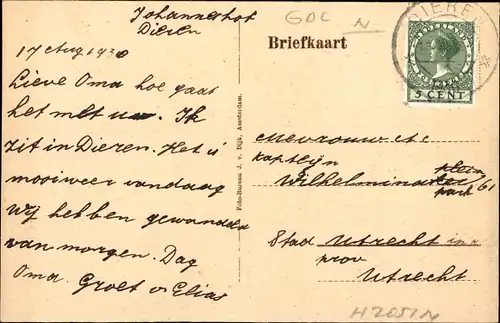 Johannerhof
Dieren
GDL N
17 Aug 1930
Briefkaart
DIEREN
NEDERLAND
5 CENT
Lieve Oma hoe gaat
het met u. Ik
zit in Dieren. Het is
mooiweer vandaag
Wij hebben gewandeld
van morgen. Dag
Oma. Groet v Elias
Foto-Bureau J. v. Dijk, Amsterdam.
Mevrouw
Kapteijn
Wilhelmina park 61
Stad Utrecht in d
prov
Utrecht
H2051N